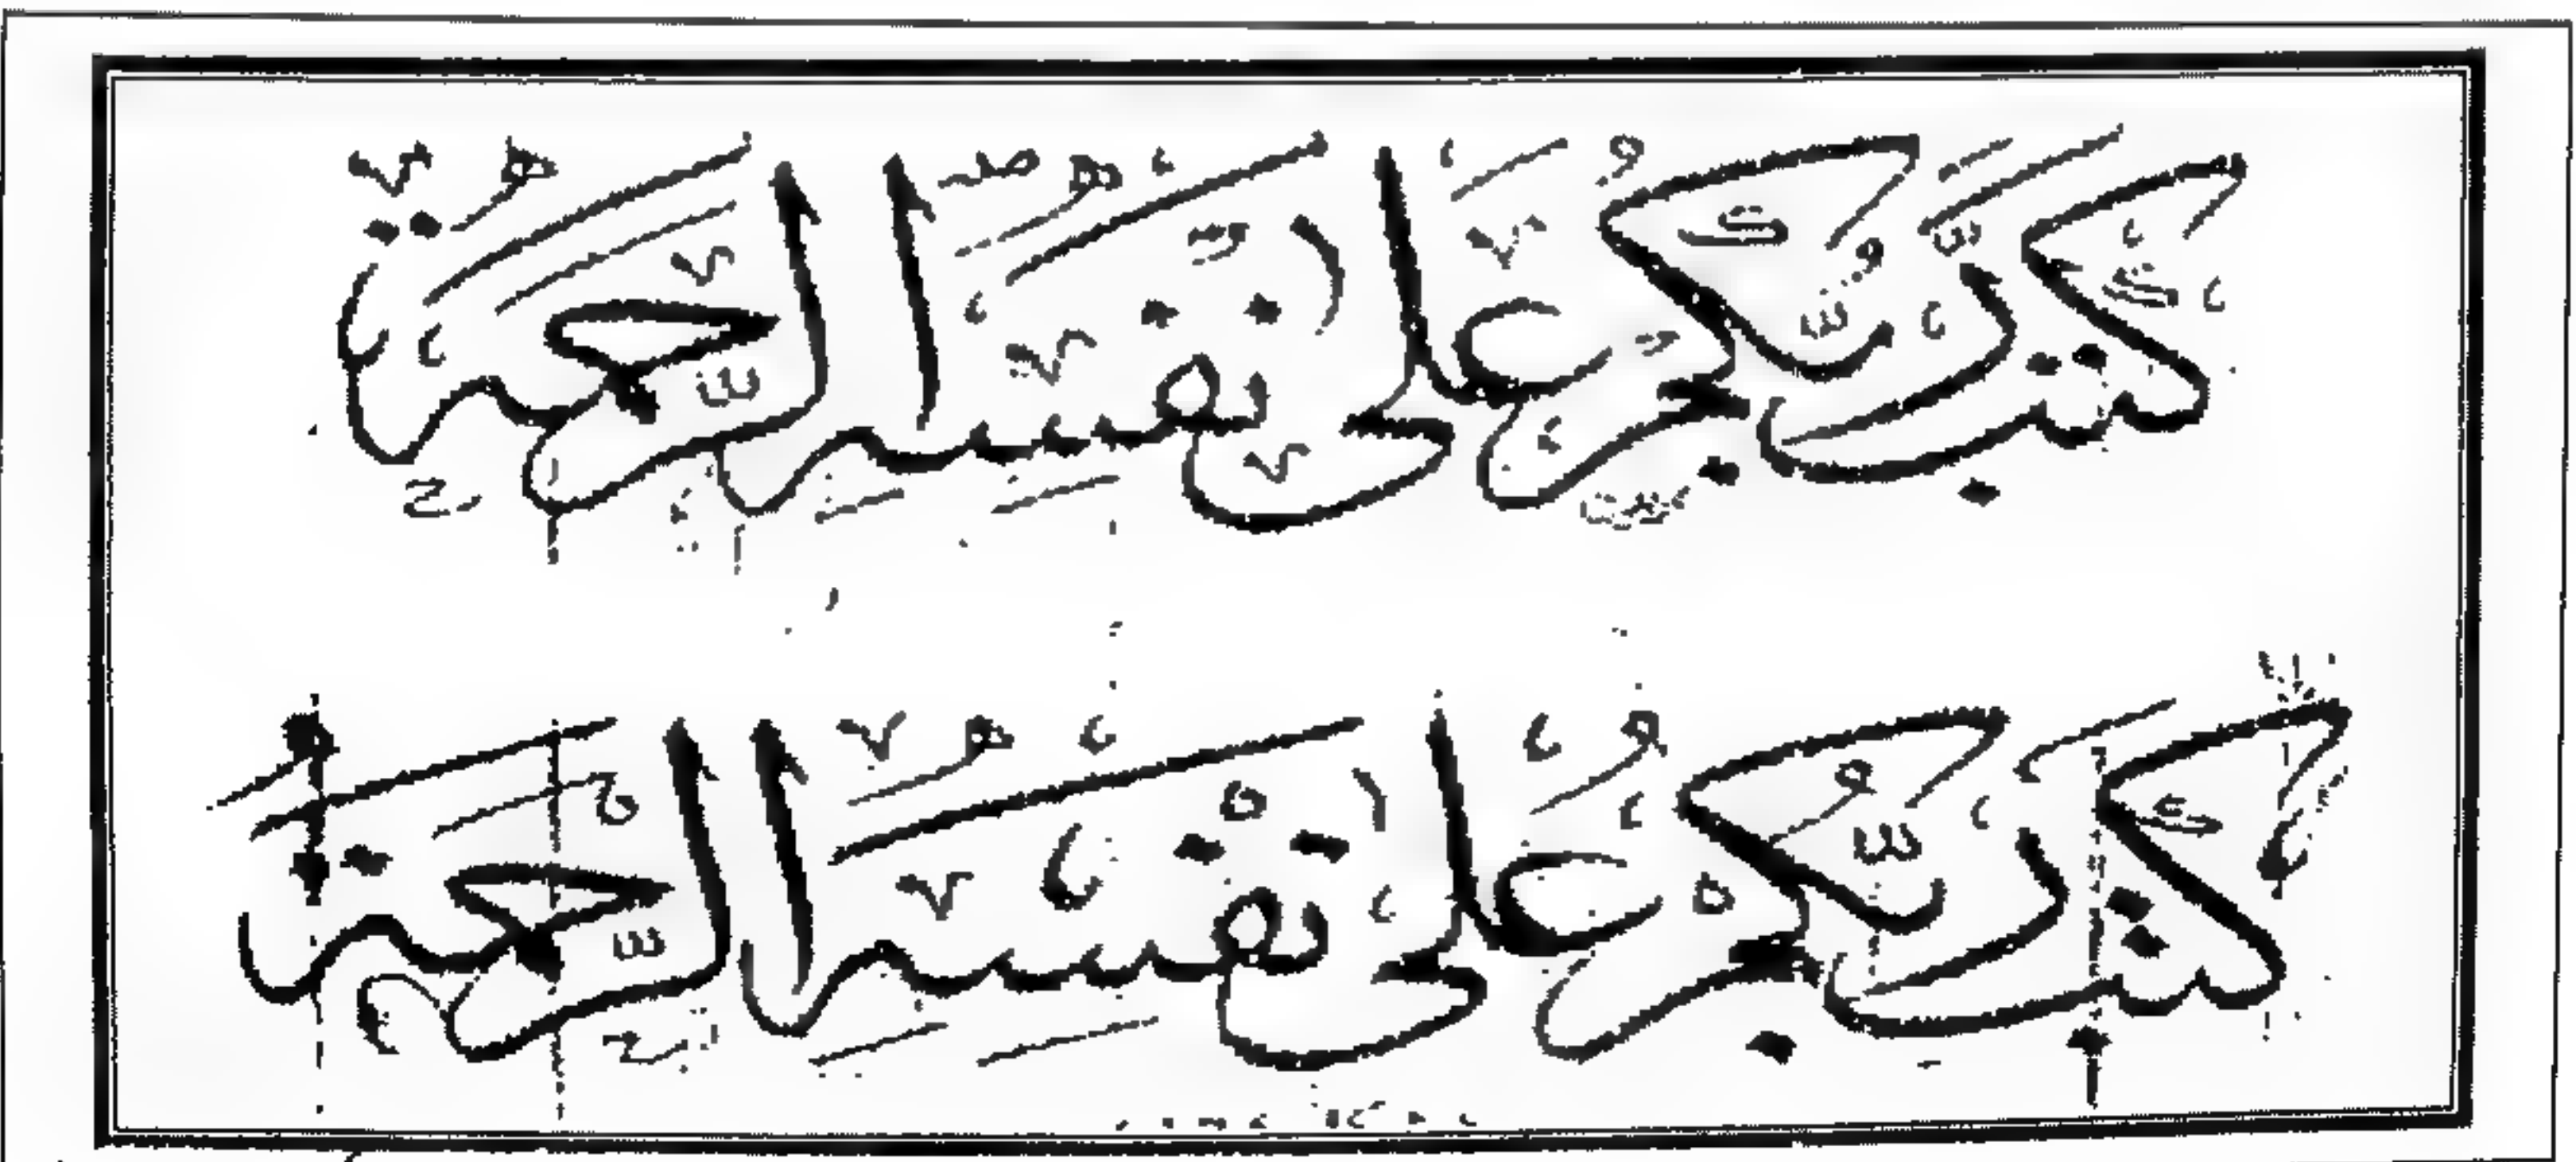 كَتَبَ رَبُّكُمْ عَلَى نَفْسِهِ الرَّحْمَةَ
كَتَبَ رَبُّكُمْ عَلَى نَفْسِهِ الرَّحْمَةَ